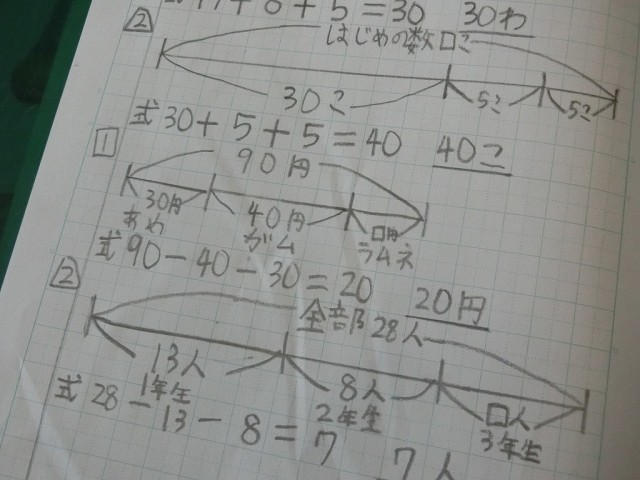 +6+5=30 30わ
② はじめの数□こ
30こ 5こ 5こ
式30+5+5=40 40こ
1 90円
30円 40円 □円
あめ ガム ラムネ
式90-40-30=20 20円
2 全部28人
13人 8人 □人
1年生 2年生 3年生
式28-13-8=7 7人